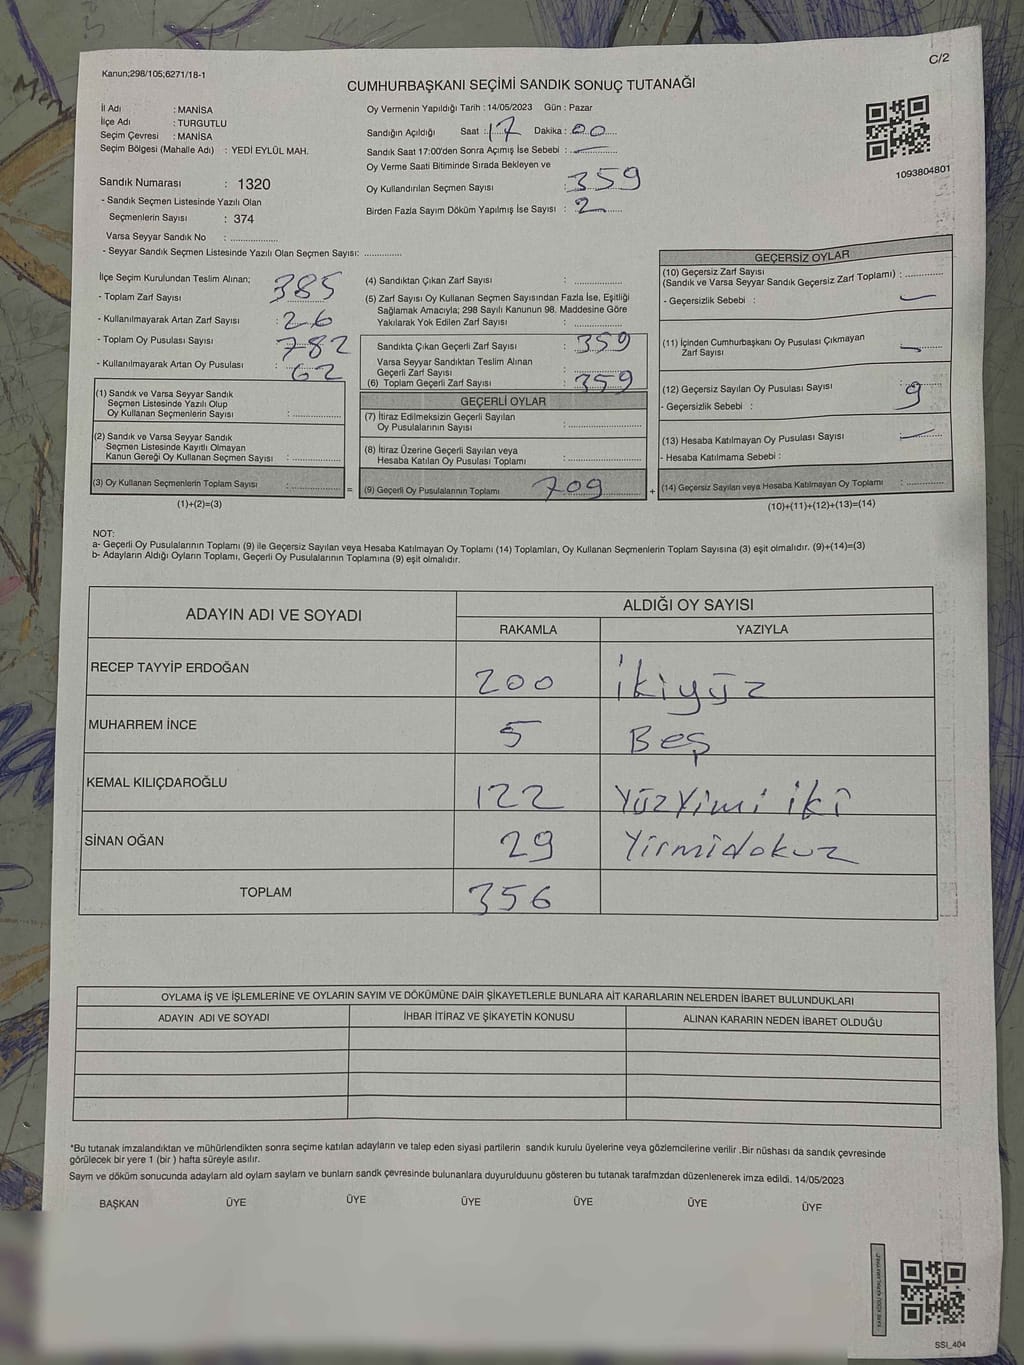 Kanun;298/105;6271/18-1
C/2
CUMHURBAŞKANI SEÇİMİ SANDIK SONUÇ TUTANAĞI
İl Adı : MANİSA
İlçe Adı : TURGUTLU
Seçim Çevresi : MANİSA
Seçim Bölgesi (Mahalle Adı) : YEDİ EYLÜL MAH.
Sandık Numarası : 1320
- Sandık Seçmen Listesinde Yazılı Olan
Seçmenlerin Sayısı : 374
Varsa Seyyar Sandık No :
- Seyyar Sandık Seçmen Listesinde Yazılı Olan Seçmen Sayısı:
Oy Vermenin Yapıldığı Tarih : 14/05/2023 Gün : Pazar
Sandığın Açıldığı Saat : 17 Dakika : 00
Sandık Saat 17:00'den Sonra Açımış İse Sebebi : —
Oy Verme Saati Bitiminde Sırada Bekleyen ve
Oy Kullandırılan Seçmen Sayısı : 359
Birden Fazla Sayım Döküm Yapılmış İse Sayısı : 2
1093804801
İlçe Seçim Kurulundan Teslim Alınan;
- Toplam Zarf Sayısı 385
- Kullanılmayarak Artan Zarf Sayısı : 26
- Toplam Oy Pusulası Sayısı : 782
- Kullanılmayarak Artan Oy Pusulası : 62
(1) Sandık ve Varsa Seyyar Sandık
Seçmen Listesinde Yazılı Olup
Oy Kullanan Seçmenlerin Sayısı :
(2) Sandık ve Varsa Seyyar Sandık
Seçmen Listesinde Kayıtlı Olmayan
Kanun Gereği Oy Kullanan Seçmen Sayısı :
(3) Oy Kullanan Seçmenlerin Toplam Sayısı :
(1)+(2)=(3)
=
(4) Sandıktan Çıkan Zarf Sayısı :
(5) Zarf Sayısı Oy Kullanan Seçmen Sayısından Fazla İse, Eşitliği
Sağlamak Amacıyla; 298 Sayılı Kanunun 98. Maddesine Göre
Yakılarak Yok Edilen Zarf Sayısı :
Sandıkta Çıkan Geçerli Zarf Sayısı : 359
Varsa Seyyar Sandıktan Teslim Alınan
Geçerli Zarf Sayısı :
(6) Toplam Geçerli Zarf Sayısı : 359
GEÇERLİ OYLAR
(7) İtiraz Edilmeksizin Geçerli Sayılan
Oy Pusulalarının Sayısı :
(8) İtiraz Üzerine Geçerli Sayılan veya
Hesaba Katılan Oy Pusulası Toplamı :
(9) Geçerli Oy Pusulalarının Toplamı 709
+
GEÇERSİZ OYLAR
(10) Geçersiz Zarf Sayısı
(Sandık ve Varsa Seyyar Sandık Geçersiz Zarf Toplamı) :
- Geçersizlik Sebebi : —
(11) İçinden Cumhurbaşkanı Oy Pusulası Çıkmayan
Zarf Sayısı : —
(12) Geçersiz Sayılan Oy Pusulası Sayısı : 9
- Geçersizlik Sebebi :
(13) Hesaba Katılmayan Oy Pusulası Sayısı : —
- Hesaba Katılmama Sebebi :
(14) Geçersiz Sayılan veya Hesaba Katılmayan Oy Toplamı :
(10)+(11)+(12)+(13)=(14)
NOT:
a- Geçerli Oy Pusulalarının Toplamı (9) ile Geçersiz Sayılan veya Hesaba Katılmayan Oy Toplamı (14) Toplamları, Oy Kullanan Seçmenlerin Toplam Sayısına (3) eşit olmalıdır. (9)+(14)=(3)
b- Adayların Aldığı Oyların Toplamı, Geçerli Oy Pusulalarının Toplamına (9) eşit olmalıdır.
ADAYIN ADI VE SOYADI ALDIĞI OY SAYISI
RAKAMLA YAZIYLA
RECEP TAYYİP ERDOĞAN 200 İkiyüz
MUHARREM İNCE 5 Beş
KEMAL KILIÇDAROĞLU 122 Yüzyimi iki
SİNAN OĞAN 29 Yirmidokuz
TOPLAM 356
OYLAMA İŞ VE İŞLEMLERİNE VE OYLARIN SAYIM VE DÖKÜMÜNE DAİR ŞİKAYETLERLE BUNLARA AİT KARARLARIN NELERDEN İBARET BULUNDUKLARI
ADAYIN ADI VE SOYADI İHBAR İTİRAZ VE ŞİKAYETİN KONUSU ALINAN KARARIN NEDEN İBARET OLDUĞU
*Bu tutanak imzalandıktan ve mühürlendikten sonra seçime katılan adayların ve talep eden siyasi partilerin sandık kurulu üyelerine veya gözlemcilerine verilir .Bir nüshası da sandık çevresinde
görülecek bir yere 1 (bir ) hafta süreyle asılır.
Sayım ve döküm sonucunda adayların ald oyların sayların ve bunların sandk çevresinde bulunanlara duyurulduunu gösteren bu tutanak tarafmzdan düzenlenerek imza edildi. 14/05/2023
BAŞKAN ÜYE ÜYE ÜYE ÜYE ÜYE ÜYE
SSI_404